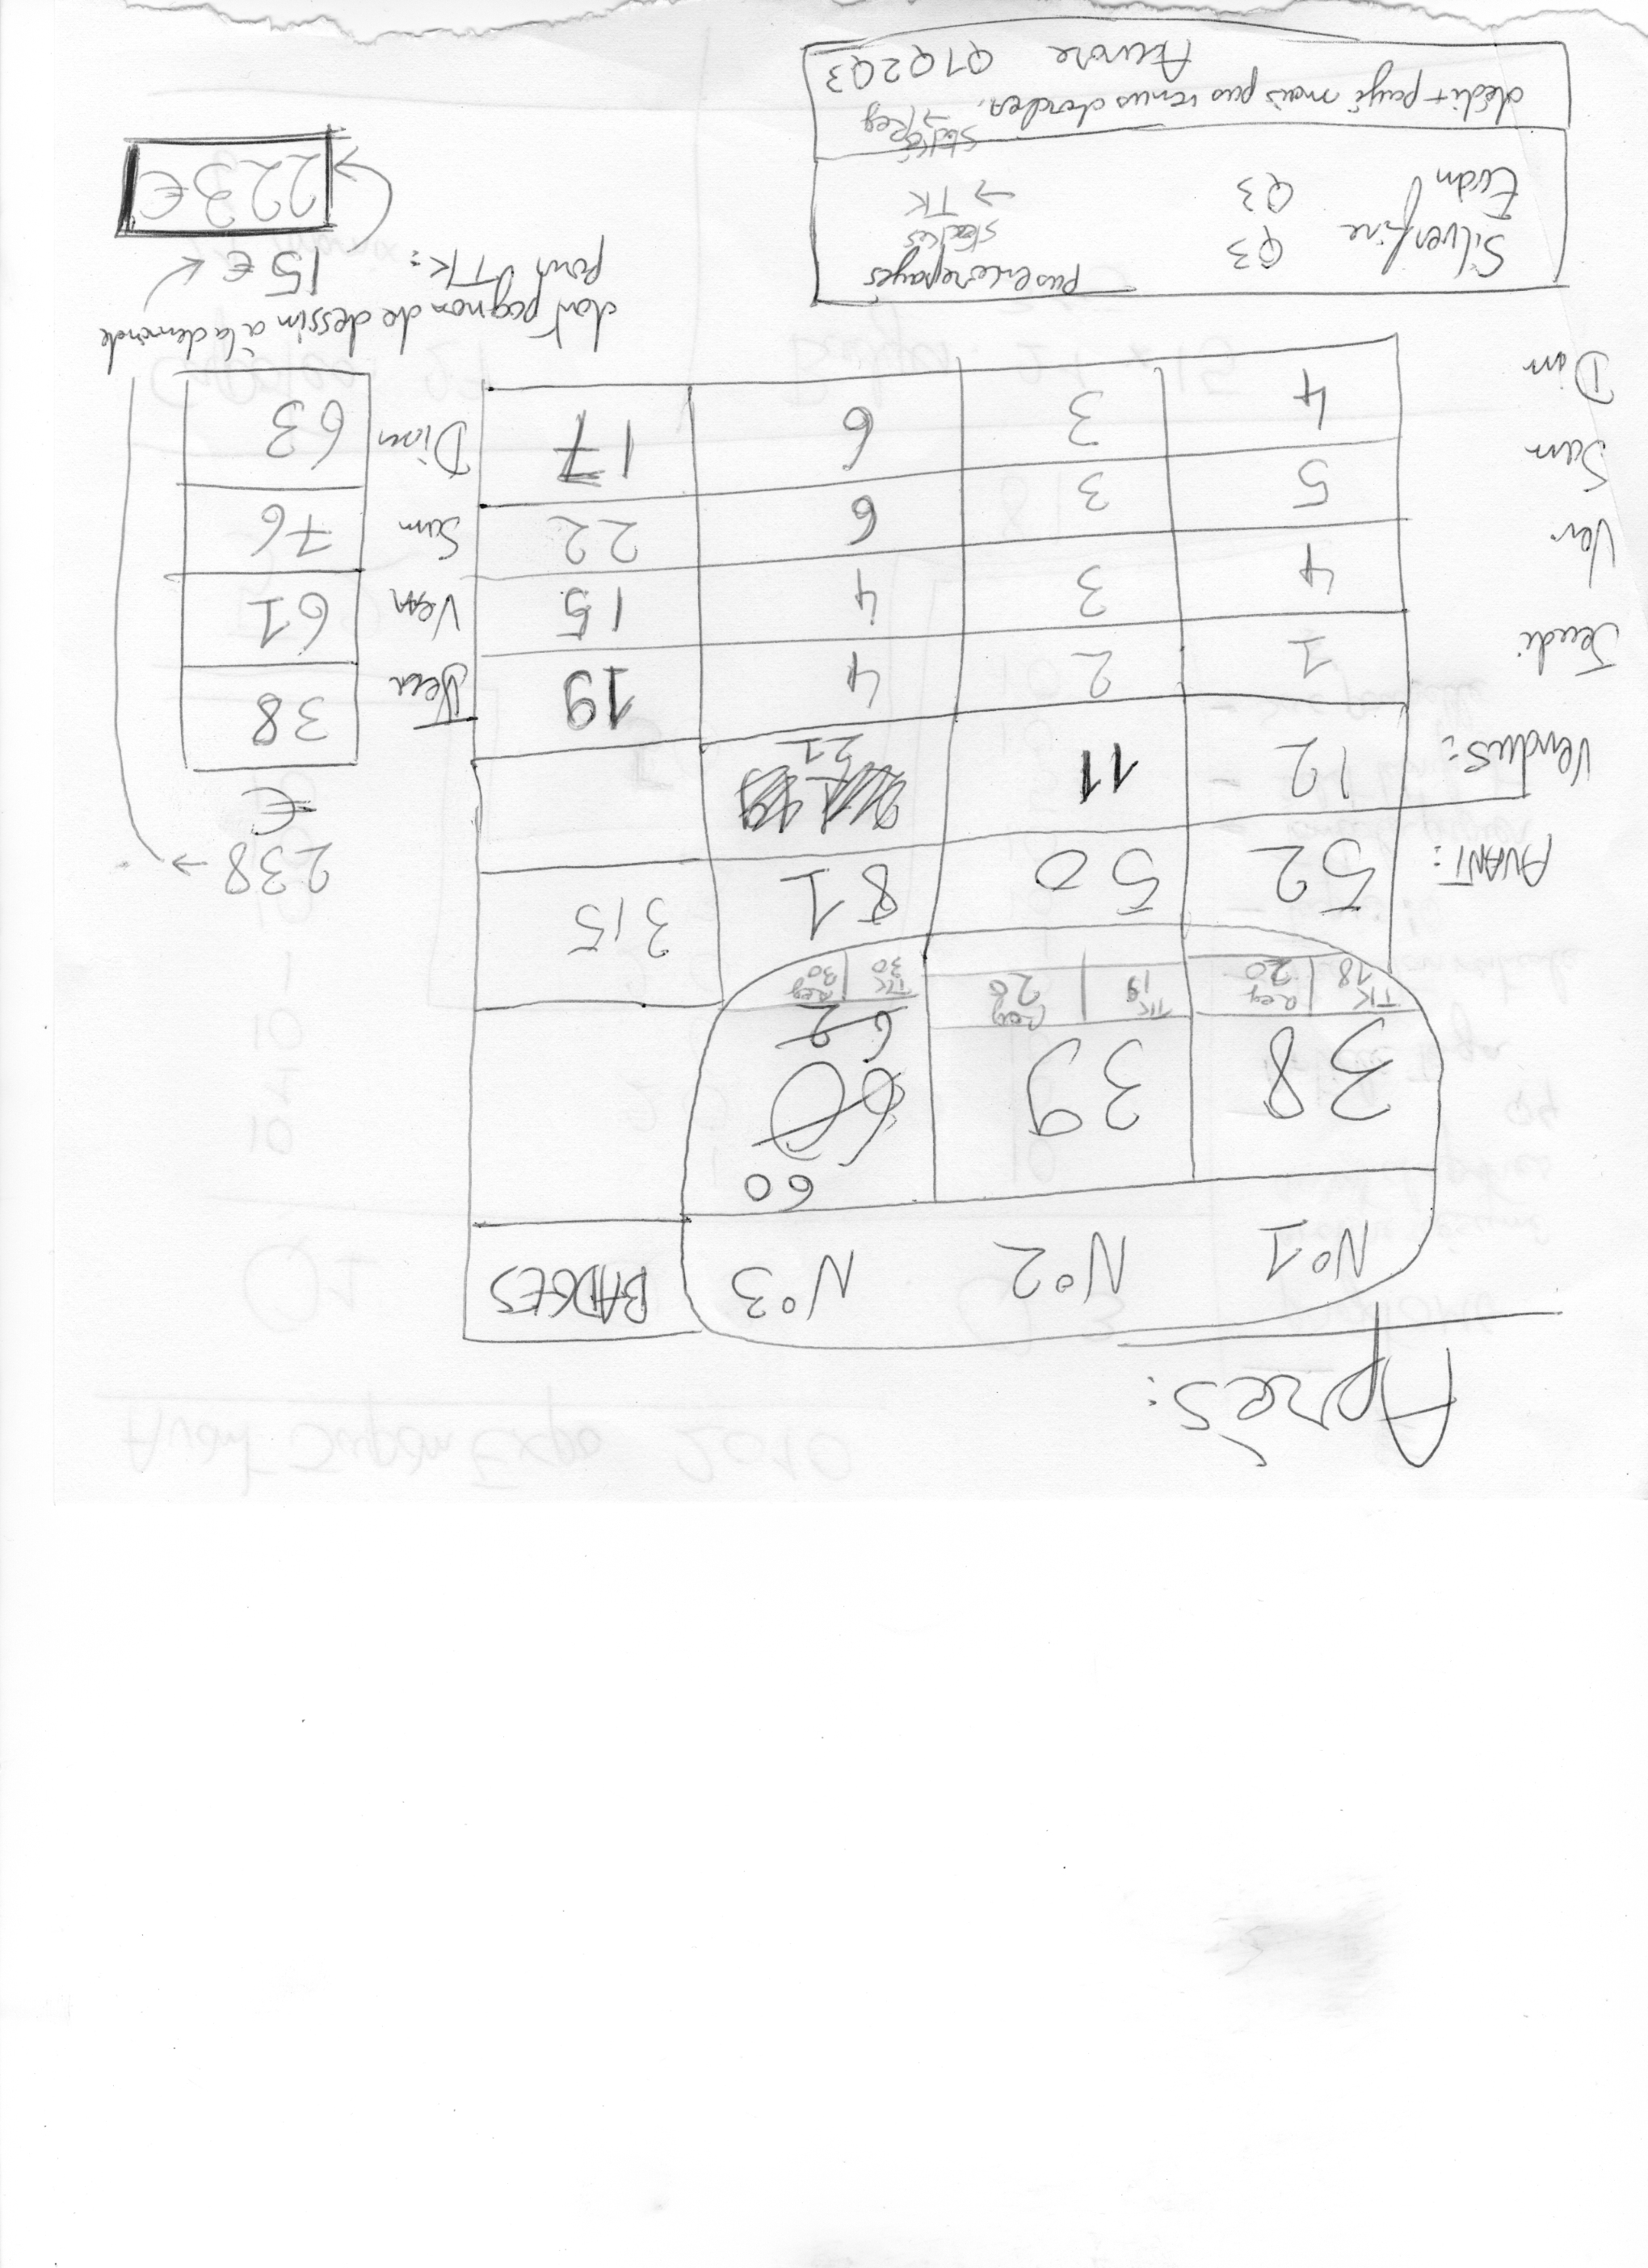 Après:
N°1 N°2 N°3 BADGES
60
38 39 60
62
TK 18 Reg 20 TK 19 Reg 20 TK 30 Reg 30
AVANT: 52 50 81 315 238 →
€
Vendus: 12 11 21
Jeudi 1 2 4 19 38
Ven 4 3 4 15 Ven 61
Sam 5 3 6 22 Sam 76
Dim 4 3 6 17 Dim 63
Silverfire Q3 pas encore payés
stockés → TK
Evan Q3
stocké → Reg
dédit + payé mais pas venus chercher.
Aurore Q1Q2Q3
dont pognon de dessin à la demande
pour TK: 15€ ←
→ 223€
Avant Japan Expo 2010